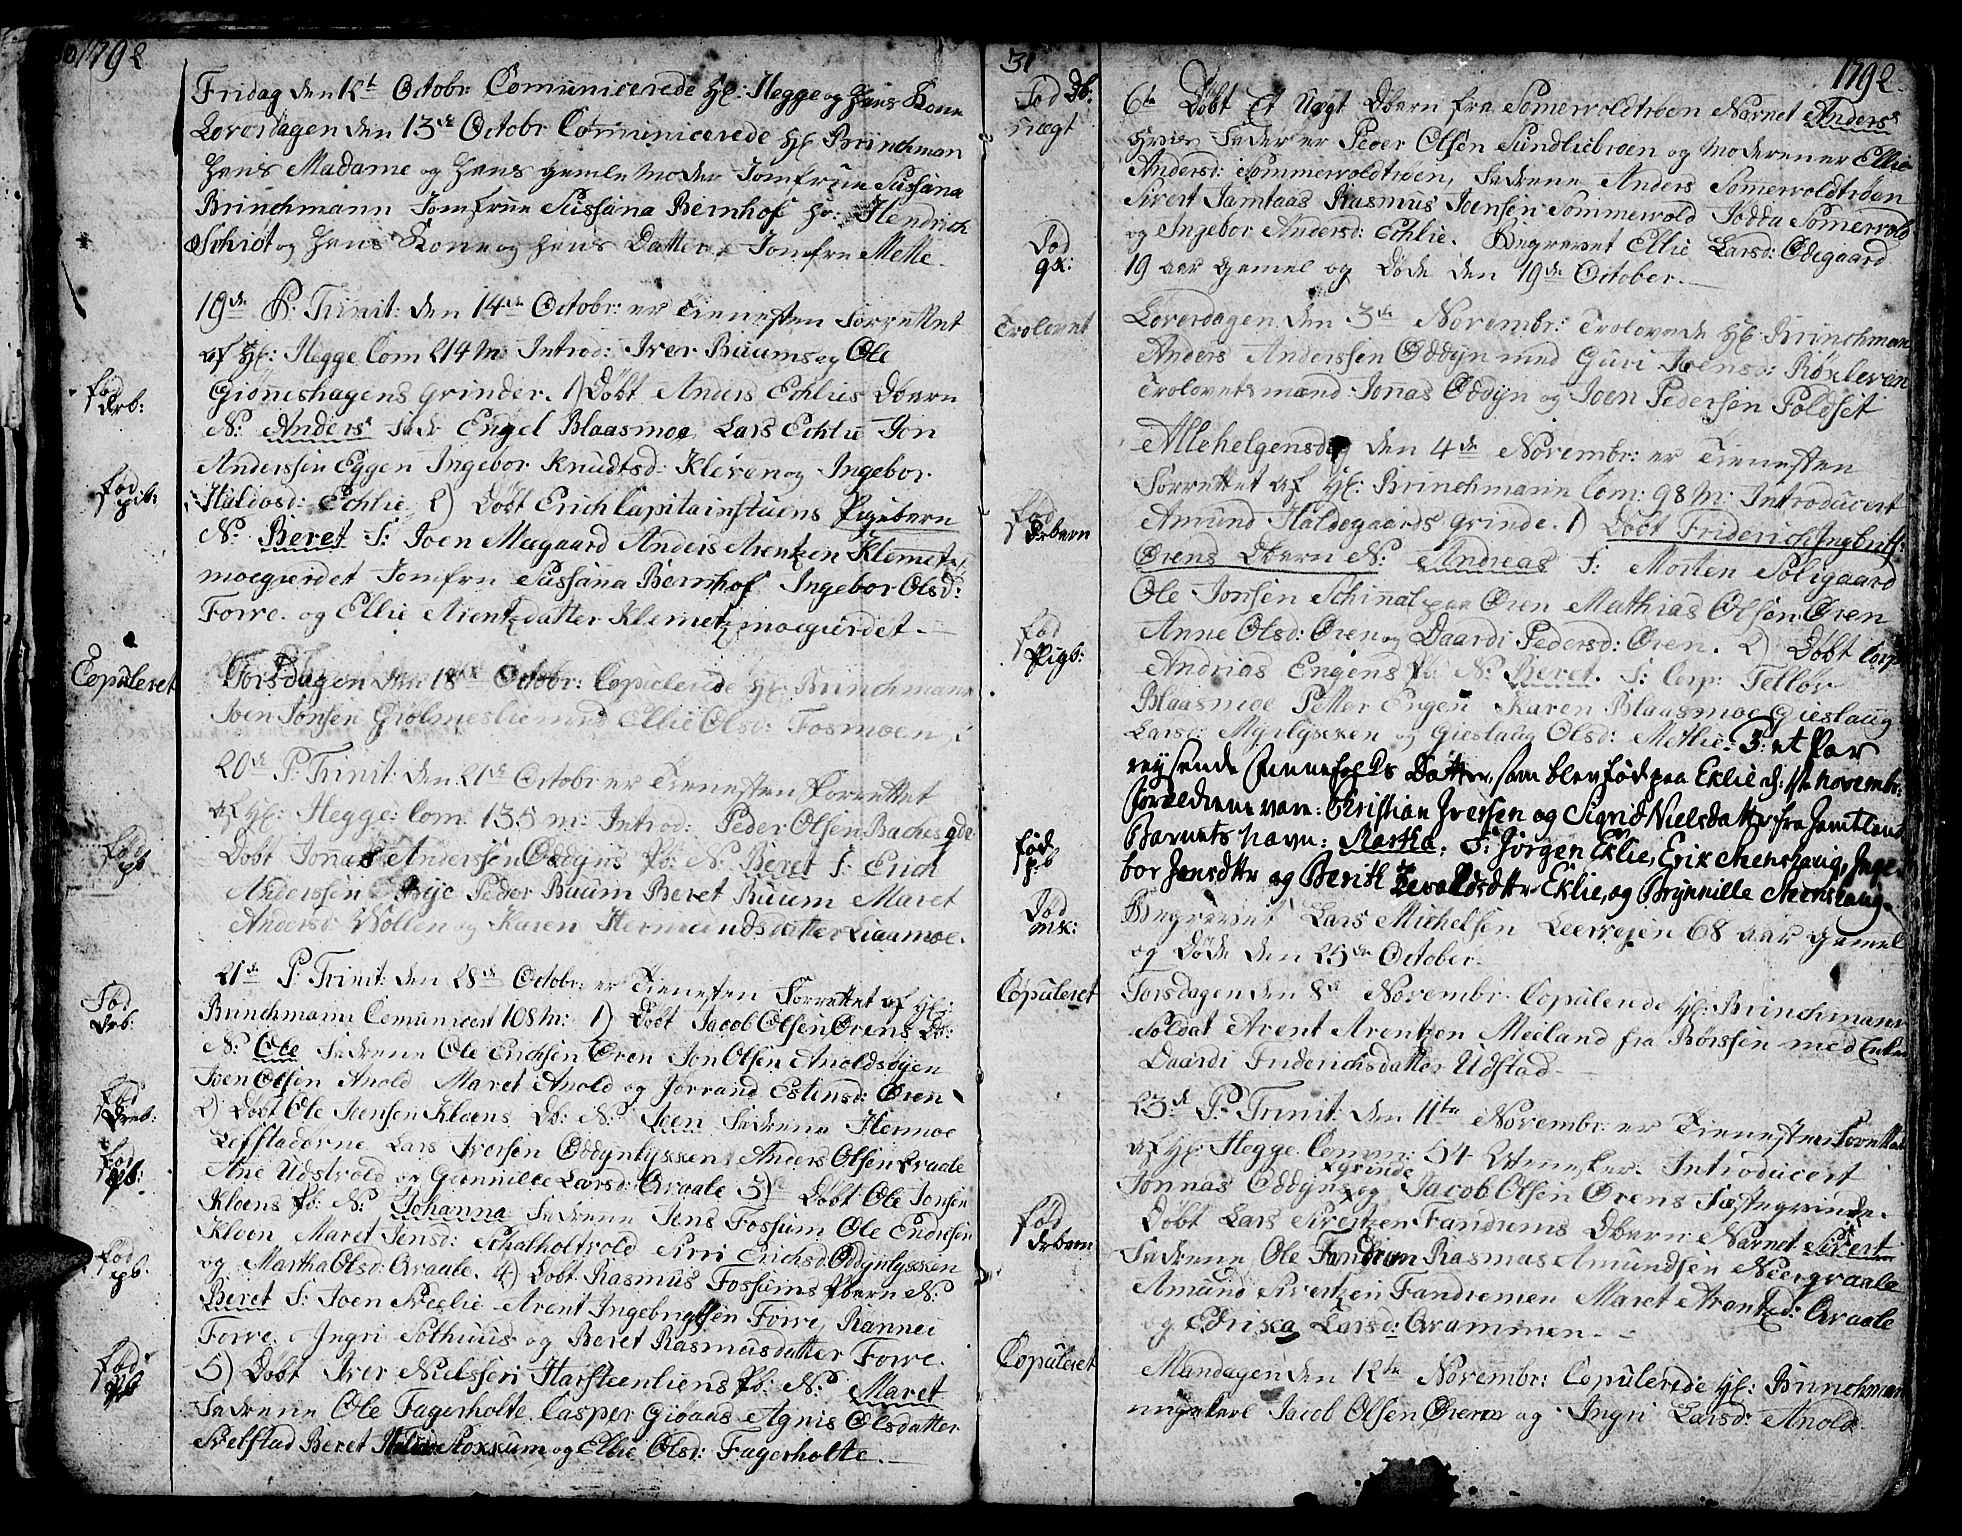 1792
Fridag den 12t Octobr: Comunicerede Hr: Hegge og hans Kone
Loverdagen den 13de Octobr Comunicerede Hr Brinchman
hans Madame og hans gamle Moder Jomfrue Sussana
Brinchmann Jomfrue Sussana Bernhof Hr: Hendrich
Schiøt og hans Kone og hans Datter Jomfru Mette.
19de P: Trinit: den 14de Octobr: er Tienesten Forrettet
af Hr: Hegge Com 214 M: Introd: Iver Buums og Ole
Giøneshagens grinder. 1) Døbt Anders Echlies Dbarn
fød
Drb:
N: Anders Fadr Engel Blaasmoe Lars Echlie Jon
Anderssen Eggen Ingebor Knudtsd: Kleven og Ingebor
fød
pib:
Haldosd: Echlie 2) Døbt Erich Capitainstuens Pigebarn
N: Beret F: Joen Meegaard Anders Arentzen Klemet
moegierdet Jomfru Sussana Bernhof Ingebor Olsd:
Forre. og Ellie Arentzdatter Klemetzmoegierdet.
Copuleret
Torsdagen den 18de Octobr: Copulerede Hr: Brinchmann
Joen Jonsen Giølmeslie med Ellie Olsd: Fosmoen
20de P: Trinit: den 21de Octobr: er Tienesten Forrettet
af Hr: Hegge: Com 135 M: Introd: Peder Olsen Baches gde
fød
pb
Døbt Jonas Anderssen Oddyns Pb: N: Beret F: Erich
Anderssen Bye Peder Buum Beret Buum Maret
Andersd Wollen og Karen Hermundsdatter Liaamoe.
21de P: Trinit: den 28de Octobr: er Tienesten Forrettet af Hr:
Fød
Drb:
Brinchmann Comunicert 108 M: 1) Døbt Jacob Olsen Ørens Db:
N: Ole Fadrene Ole Erichsen Øren Jon Olsen Anoldsøyen
Joen Olsen Anold Maret Anold og Jorrand Estensd: Øren
fød
Dreb:
2) Døbt Ole Joensen Kloens Db: N: Joen Fadrene Hermoe
Leffstadørne Lars Iversen Oddynlykken Anders Olsen Qvaale
fød
pb:
Ane Udstvold og Gunnille Larsd: Qvaale 3) Døbt Ole Jonsen
Kloens Pb: N: Johanna Fadrene Jens Fossum Ole Endresen
Kloen Maret Jensd: Schalholtvold Sirri Erichsd: Oddynlykken
fød
pb.
og Martha Olsd: Qvaale. 4) Døbt Rasmus Fossums Pbern N:
Beret F: Joen Sveelie Arent Ingebrigtsen Forre Rannei
Forre. Ingri Solhuus og Beret Rasmusdatter Forre.
fød
Pb
5) Døbt Iver Nielssen Harsteenliens Pb: N: Maret
Fadrene Ole Fagerholte Casper Giøaas Agnis Olsdatter
Svelstad Beret Stoxxum og Ellie Olsd: Fagerholte.
31
1792
Fød Db:
uægt
6te Døbt Et Uægt Dbern fra Somerwoldtrøen Navnet Anders
hvis Fader er Peder Olsen Sundliebroen og Moderen er Ellie
Andersd: Sommerwoldtrøen, Fadrene Anders Somerwoldtrøen
Sivert Jamtaas Rasmus Joensen Sommerwold Jodda Somerwold
Død
qk:
og Ingebor Andersd: Echlie. Begravet Ellie Larsd: Ødegaard
19 aar gamel og Døde den 19de October.
Trolovet
Loverdagen den 3de Novembr: Trolovede Hr Brinchman
Anders Anderssen Oddyn med Guri Joensd: Røxleven
Trolovetsmænd Jonas Oddyn og Joen Pedersen Foldset
Allehelgensdag den 4de Novembr: er Tienesten
Forrettet af Hr: Brinchmann Com: 98 M: Introducert
fød
Drbern
Amund Haldogaards grinde. 1) Døbt Friderich Ingebrtz:
Ørens Dbern N: Andreas F: Morten Soligaard
Ole Jonsen Schinal paa Øren Mathias Olsen Øren
fød
Pigb:
Anne Olsd: Øren og Daardi Pedersd: Øren. 2) Døbt Corp
Andrias Engens Pb: N: Beret. F: Corp: Tellør
Blaasmoe Petter Engen Karen Blaasmoe Gieslaug
Larsd: Myrlykken og Gieslaug Olsd: Metlie: 3: et Par
reysende Finnefolks Dotter, som blev fød paa Eklie d: 1te Novembr:
Foræltrene vare: Christian Iversen og Sigrid Nielsdatter fra Jemtland
fød
pb
Barnets Navn: Martha. F: Jørgen Eklie, Erik Meenshaug, Inge-
bor Jensdttr og Berith Tevoldsdttr Eklie, og Brynnille Meenshaug.
Død
mk:
Begravet Lars Michelsen Leervejen 68 aar gamel
og Døde den 25de October.
Copuleret
Torsdagen den 8de Novembr. Copulerede Hr: Brinchmann
Soldat Arent Arentzen Meeland fra Børssen med Enke
Daardi Friderichsdatter Udstad
23de P: Trinit: den 11te Novembr: er Tienesten Forrettet
af Hr: Hegge Comm: 54 Menesker. Introducert
Jonnas Oddyns grinde og Jacob Olsen Ørens Fæstegrinde.
fød
Drbern
Døbt Lars Sivertzen Fandrems Dbern Navnet Sivert
Fadrene Ole Fandrem Rasmus Amundsen Neergraale
Amund Sivertzen Fandremen Maret Arentzd: Qvaale
og Edrixa Larsd: Qrammen.
Copuleret
Mandagen den 12te Novembr: Copulerede Hr: Brinchman
ungekarl Jacob Olsen Øren og Ingri Larsd: Anold